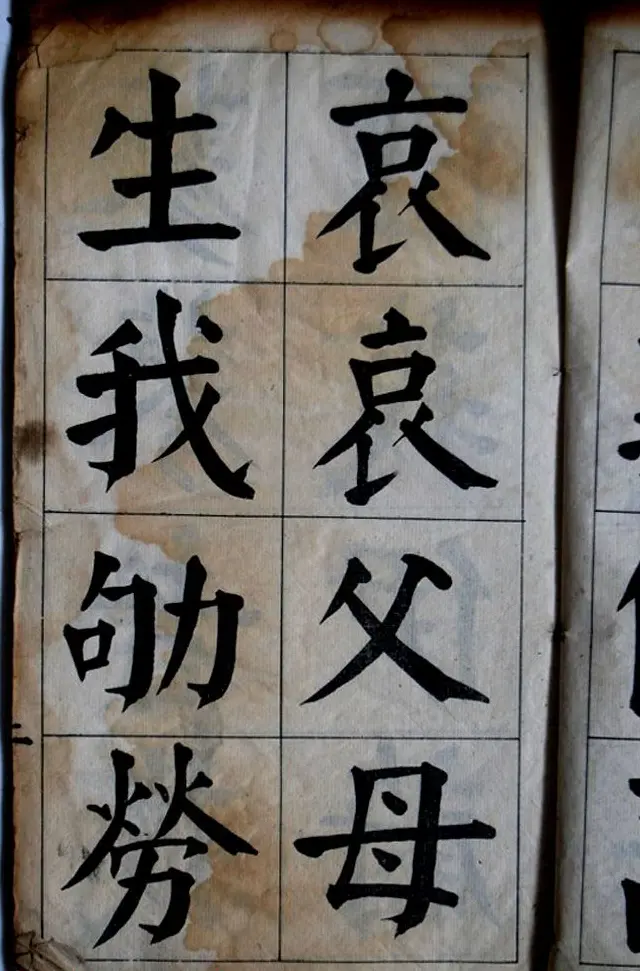 哀哀父母
生我劬勞